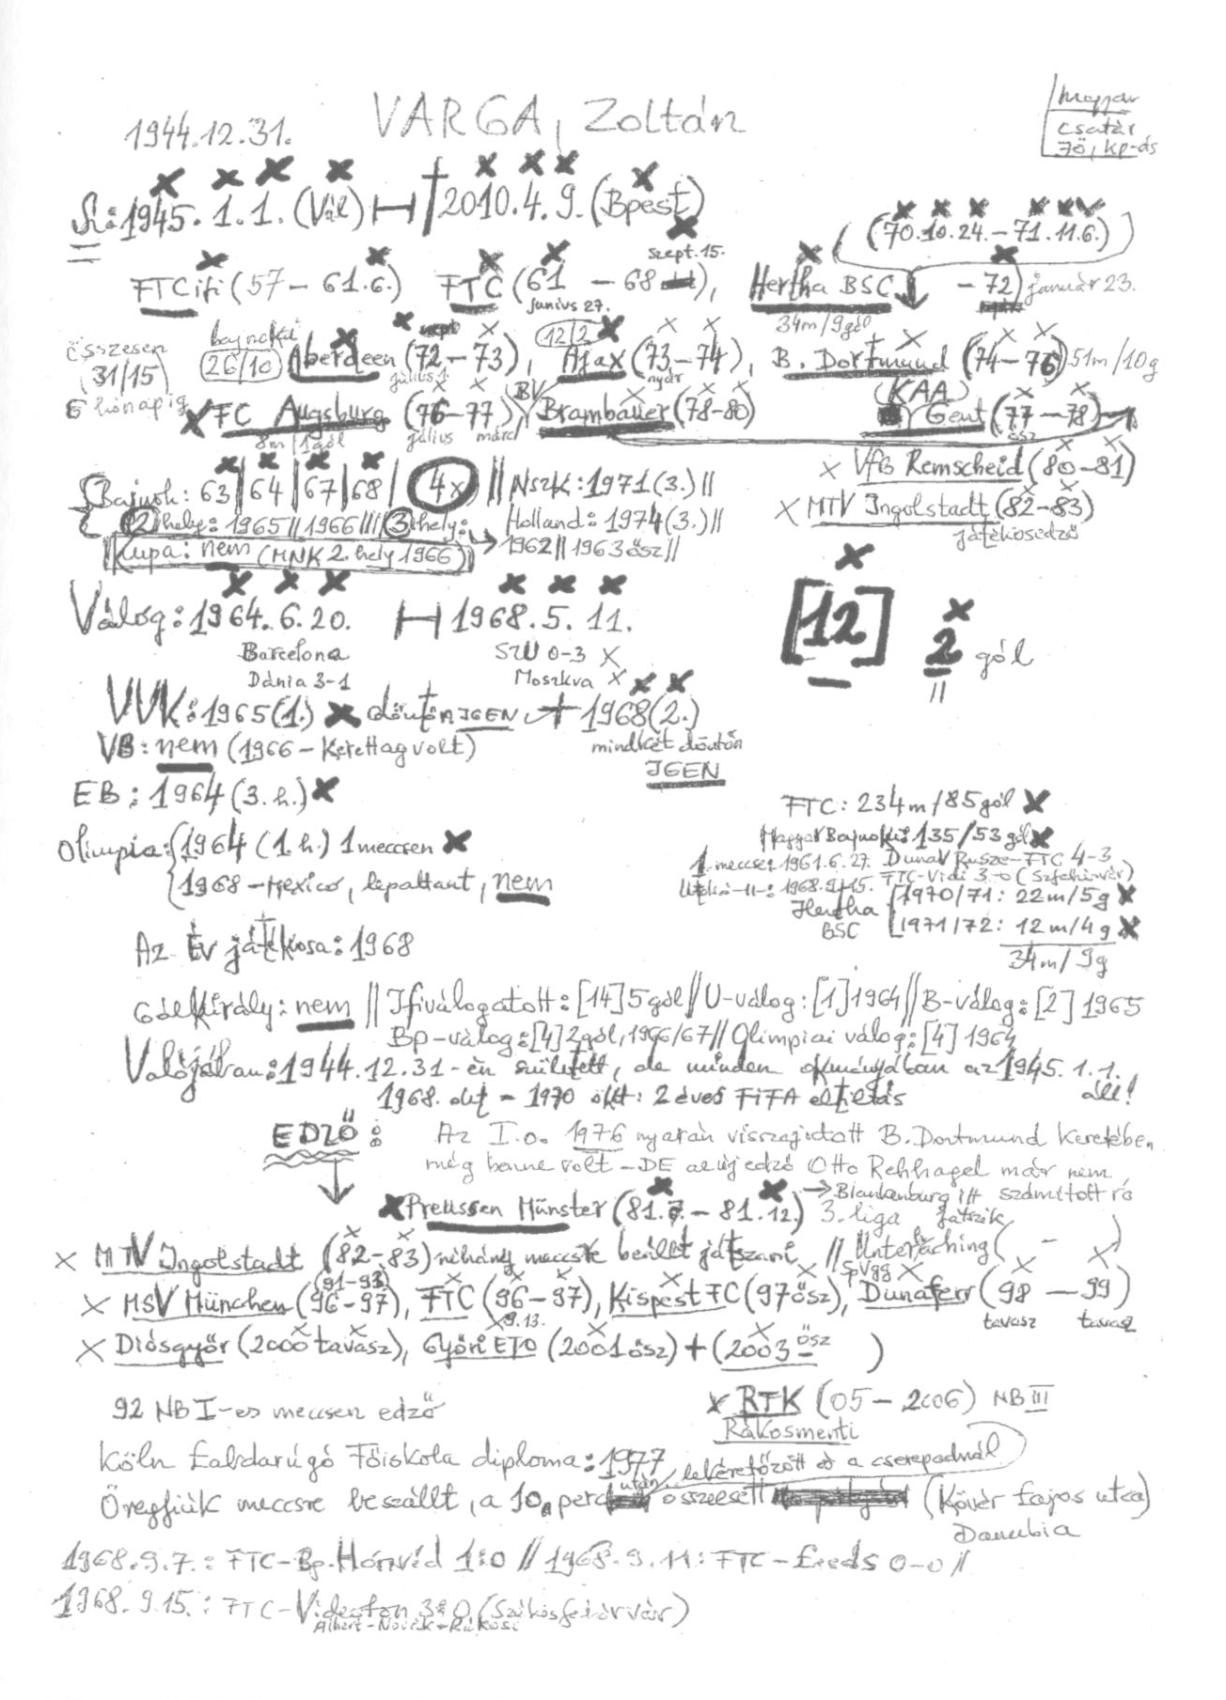 1944.12.31. VARGA, Zoltán
magyar
csatár
Jö, kp-ás
Sz:1945. 1. 1. (Vál) H †2010.4.9. (Bpest)
(70.10.24.–71.11.6.)
szept.15.
FTC ifi (57 – 61.6.) FTC (61 – 68), Hertha BSC – 72) január 23.
június 27.
34m/9gól
összesen bajnoki 12/2
(31/15) 26/10 Aberdeen (72–73), Ajax (73–74), B. Dortmund (74–76) 51m/10g
július nyár
6 hónapig FC Augsburg (76–77) BV Brambauer (78–80) (KAA) Gent (77–78)
8m/1gól július márc ősz
VfB Remscheid (80–81)
Bajnok: 63|64|67|68| 4x || NSZK:1971(3.)|| MTV Ingolstadt (82–83)
játékosedző
2 hely: 1965||1966||| 3 hely: Holland: 1974(3.)||
Kupa: nem (MNK 2. hely 1966) → 1962||1963ősz||
Válog: 1964. 6. 20. H 1968. 5. 11. [12] 2 gól
Barcelona SZU 0-3
Dánia 3-1 Moszkva
VVK: 1965(1.) döntőn IGEN + 1968(2.)
VB: nem (1966 – Kerettag volt) mindkét döntőn
IGEN
EB: 1964 (3. h.)
FTC: 234m/85gól
Olimpia: 1964 (1. h.) 1 meccsen
Magyar Bajnoki: 135/53 gól
1. meccse: 1961.6.27. Dunav Rusze–FTC 4-3
1968 – Mexico, lepattant, nem
Utolsó –11–: 1968.9.15. FTC-Vidi 3-0 (Szfehérvár)
Hertha 1970/71: 22m/5g
BSC 1971/72: 12m/4g
34m/9g
Az Év játékosa: 1968
Gólkirály: nem || Ifiválogatott: [14] 5gól || U-válog: [1] 1964 || B-válog: [2] 1965
Bp-válog: [4] 2gól, 1966/67 || Olimpiai válog: [4] 1964
Valójában: 1944.12.31-én született, de minden okmányában az 1945. 1. 1. áll!
1968. okt – 1970 okt: 2 éves FIFA eltiltás
EDZŐ: Az I.o. 1976 nyarán visszajutott B. Dortmund keretében
még benne volt – DE az új edző Otto Rehhagel már nem
számított rá
Preussen Münster (81.7. – 81.12.) 3. liga
→ Blankenburg itt játszik
MTV Ingolstadt (82–83) néhány meccsre beállt játszani // SpVgg Unterhaching ( – )
(91–93)
MSV München (96–97), FTC (96–97), Kispest FC (97ősz), Dunaferr (98 – 99)
9.13. tavasz tavasz
Diósgyőr (2000 tavasz), Győri ETO (2001ősz) + (2003 ősz )
92 NB I-es meccsen edző RTK (05 – 2006) NB III
Rákosmenti
Köln Labdarúgó Főiskola diploma: 1977
lekéretőzött és a cserepadnál
Öregfiúk meccsre beszállt, a 10. perc után összeesett (Kövér Lajos utca)
Danubia
1968.9.7.: FTC–Bp. Honvéd 1:0 // 1968.9.11: FTC – Leeds 0-0 //
1968. 9.15.: FTC–Videoton 3:0 (Székesfehérvár)
Albert-Novák-Rákosi